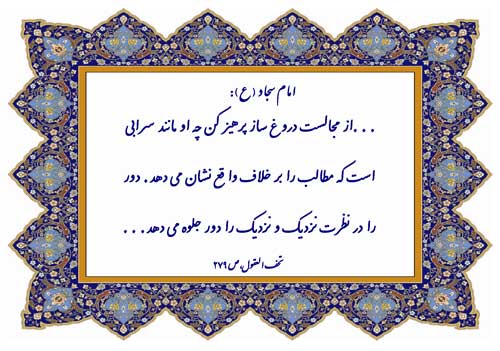 امام سجاد (ع):
...از مجالست دروغ ساز پرهیز کن چه او مانند سرابی
است که مطالب را بر خلاف واقع نشان می دهد. دور
را در نظرت نزدیک و نزدیک را دور جلوه می دهد...
تحف العقول، ص ۲۷۹